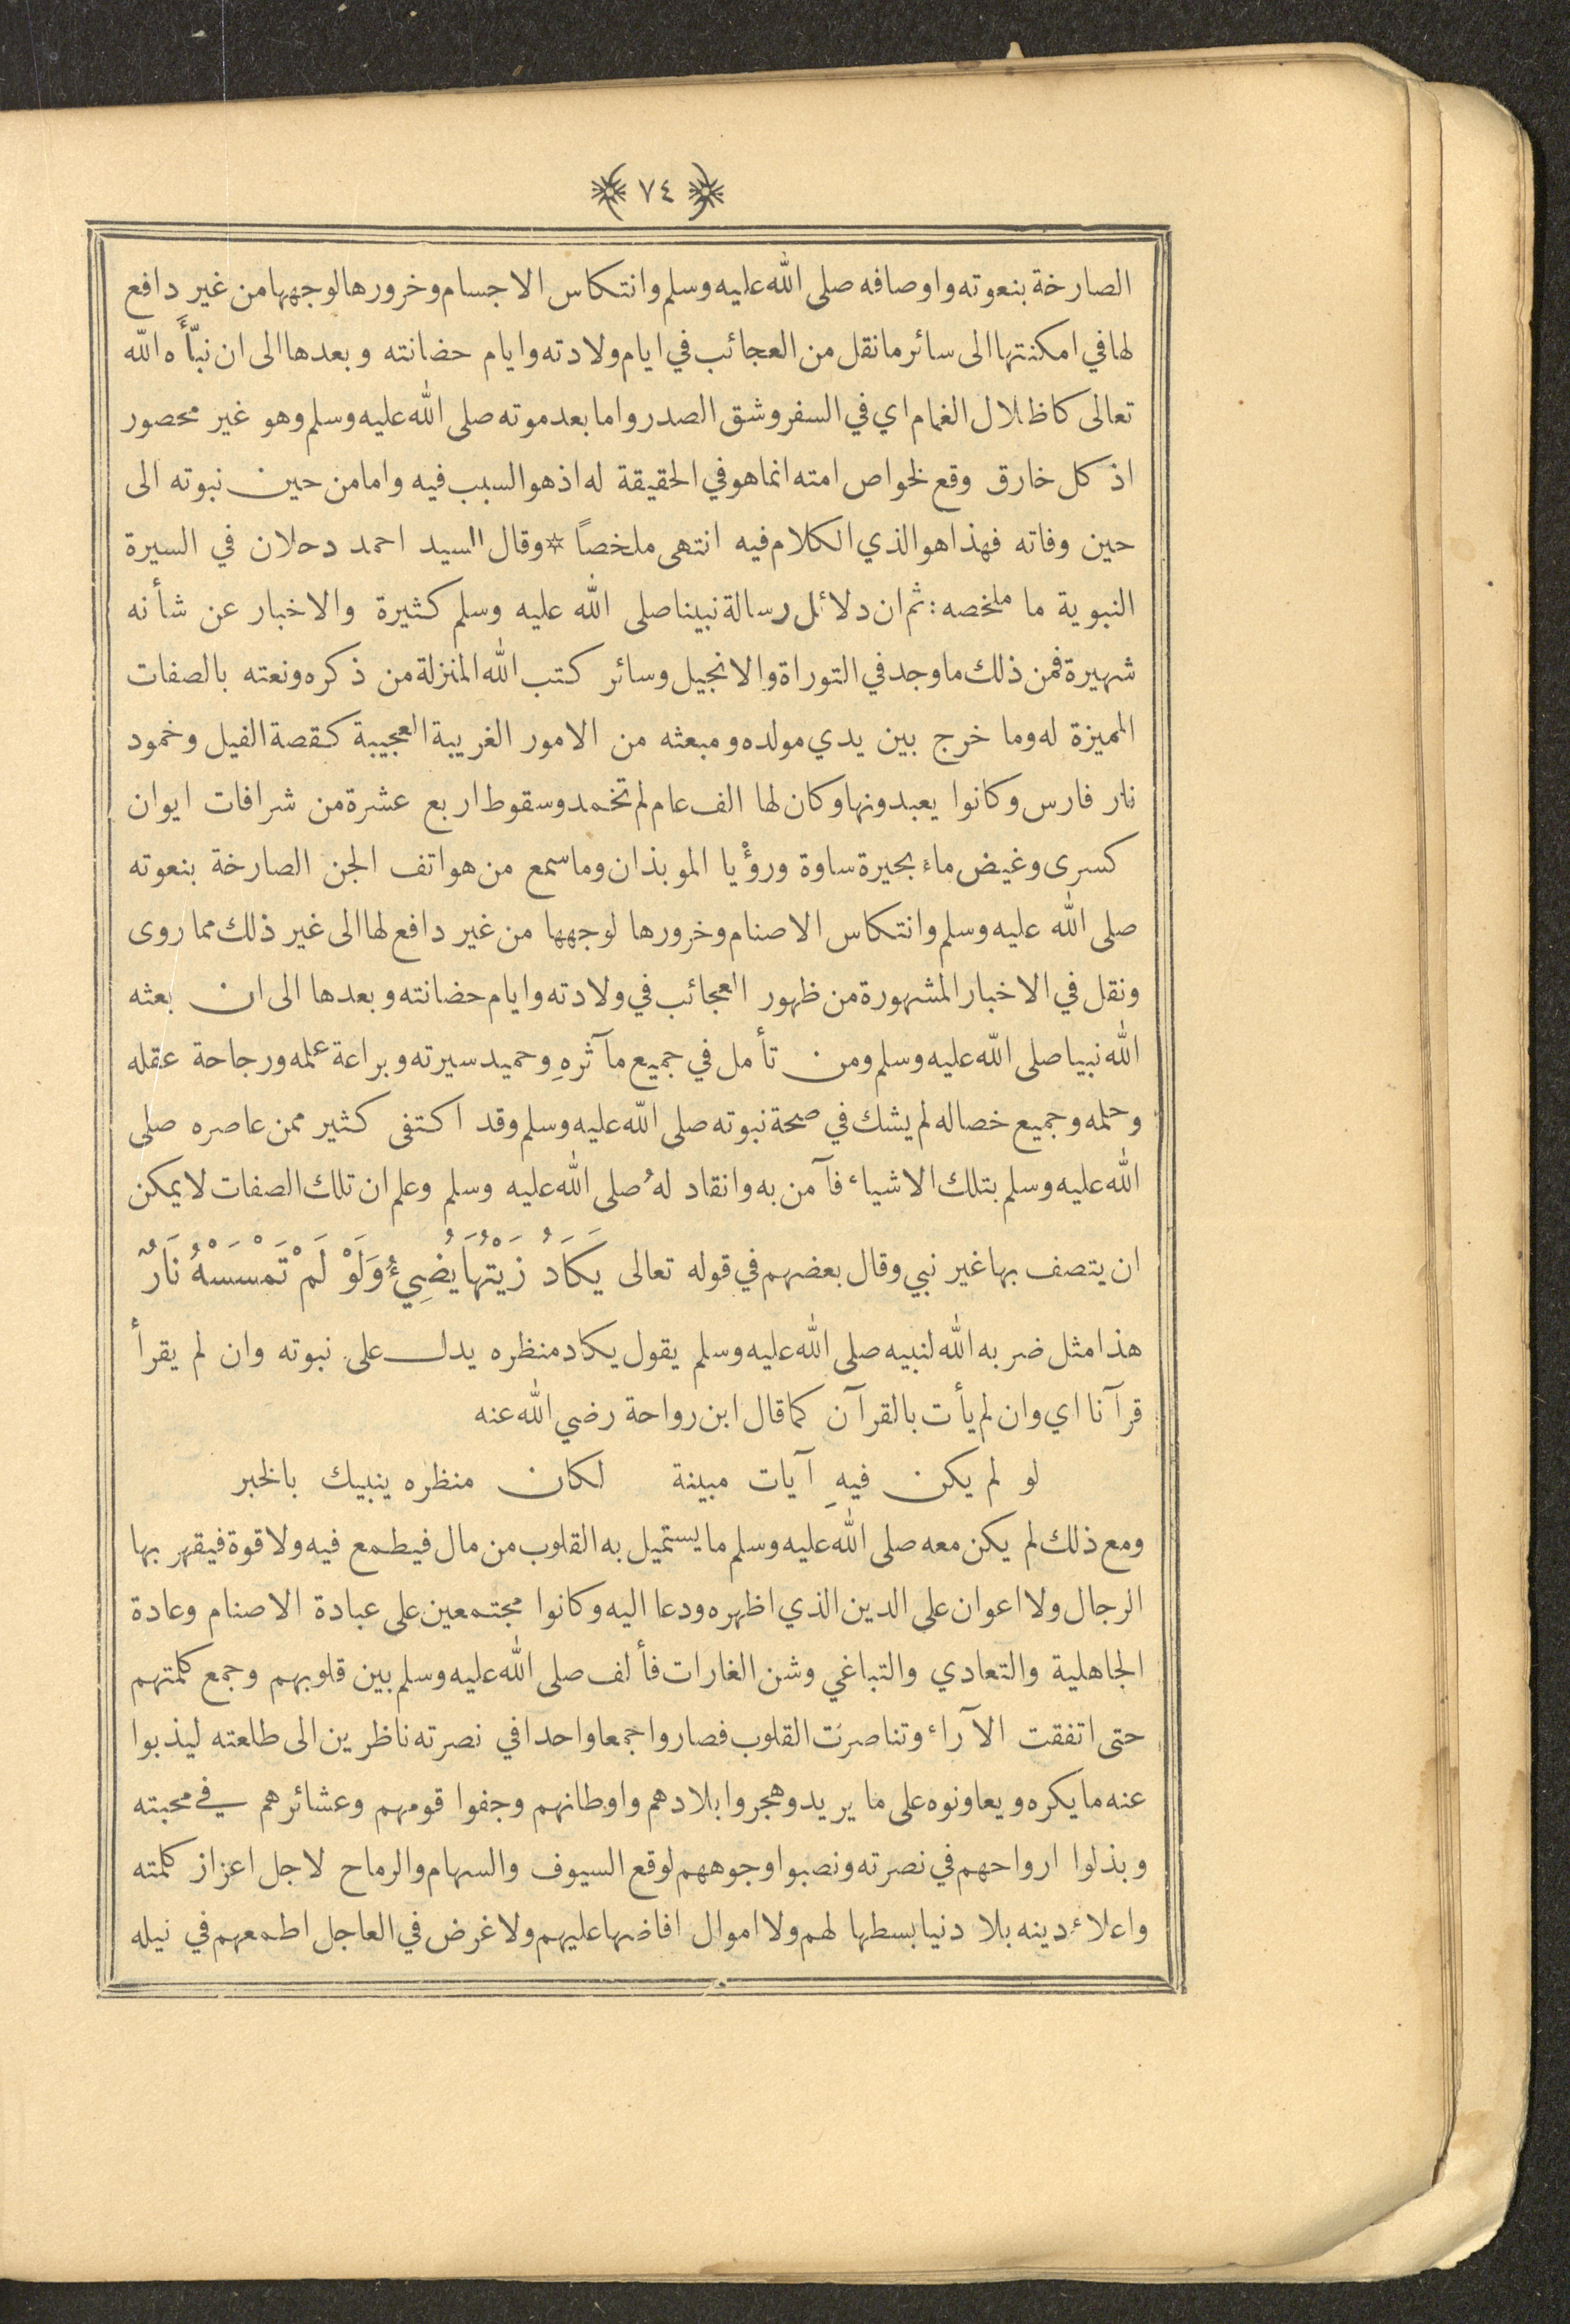 ٧٤
الصارخة بنعوته واوصافه صلى الله عليه وسلم وانتكاس الاجسام وخرورها لوجهها من غير دافع
لها في امكنتها الى سائر ما نقل من العجائب في ايام ولادته وايام حضانته وبعدها الى ان نبّأَه الله
تعالى كاظلال الغمام اي في السفر وشق الصدر واما بعد موته صلى الله عليه وسلم وهو غير محصور
اذ كل خارق وقع لخواص امته انما هو في الحقيقة له اذ هو السبب فيه واما من حين نبوته الى
حين وفاته فهذا هو الذي الكلام فيه انتهى ملخصاً * وقال السيد احمد دحلان في السيرة
النبوية ما ملخصه : ثم ان دلائل رسالة نبينا صلى الله عليه وسلم كثيرة والاخبار عن شأنه
شهيرة فمن ذلك ما وجد في التوراة والانجيل وسائر كتب الله المنزلة من ذكره ونعته بالصفات
المميزة له وما خرج بين يدي مولده ومبعثه من الامور الغريبة العجيبة كقصة الفيل وخمود
نار فارس وكانوا يعبدونها وكان لها الف عام لم تخمد وسقوط اربع عشرة من شرافات ايوان
كسرى وغيض ماء بحيرة ساوة ورؤْيا الموبذان وما سمع من هواتف الجن الصارخة بنعوته
صلى الله عليه وسلم وانتكاس الاصنام وخرورها لوجهها من غير دافع لها الى غير ذلك مما روى
ونقل في الاخبار المشهورة من ظهور العجائب في ولادته وايام حضانته وبعدها الى ان بعثه
الله نبيا صلى الله عليه وسلم ومن تأمل في جميع مآثرهِ وحميد سيرته وبراعة علمه ورجاحة عقله
وحلمه وجميع خصاله لم يشك في صحة نبوته صلى الله عليه وسلم وقد اكتفى كثير ممن عاصره صلى
الله عليه وسلم بتلك الاشياء فآمن به وانقاد لهُ صلى الله عليه وسلم وعلم ان تلك الصفات لا يمكن
ان يتصف بها غير نبي وقال بعضهم في قوله تعالى يَكَادُ زَيْتُهَا يُضِيءُ وَلَوْ لَمْ تَمْسَسْهُ نَارٌ
هذا مثل ضربه الله لنبيه صلى الله عليه وسلم يقول يكاد منظره يدل على نبوته وان لم يقرأ
قرآنا اي وان لم يأت بالقرآن كما قال ابن رواحة رضي الله عنه
لو لم يكن فيهِ آيات مبينة لكان منظره ينبيك بالخبر
ومع ذلك لم يكن معه صلى الله عليه وسلم ما يستميل به القلوب من مال فيطمع فيه ولا قوة فيقهر بها
الرجال ولا اعوان على الدين الذي اظهره ودعا اليه وكانوا مجتمعين على عبادة الاصنام وعادة
الجاهلية والتعادي والتباغي وشن الغارات فألف صلى الله عليه وسلم بين قلوبهم وجمع كلمتهم
حتى اتفقت الآراء وتناصرَت القلوب فصاروا جمعا واحدا في نصرته ناظرين الى طلعته ليذبوا
عنه ما يكره ويعاونوه على ما يريد وهجروا بلادهم واوطانهم وجفوا قومهم وعشائرهم في محبته
وبذلوا ارواحهم في نصرته ونصبوا وجوههم لوقع السيوف والسهام والرماح لاجل اعزاز كلمته
واعلاء دينه بلا دنيا بسطها لهم ولا اموال افاضها عليهم ولا غرض في العاجل اطمعهم في نيله